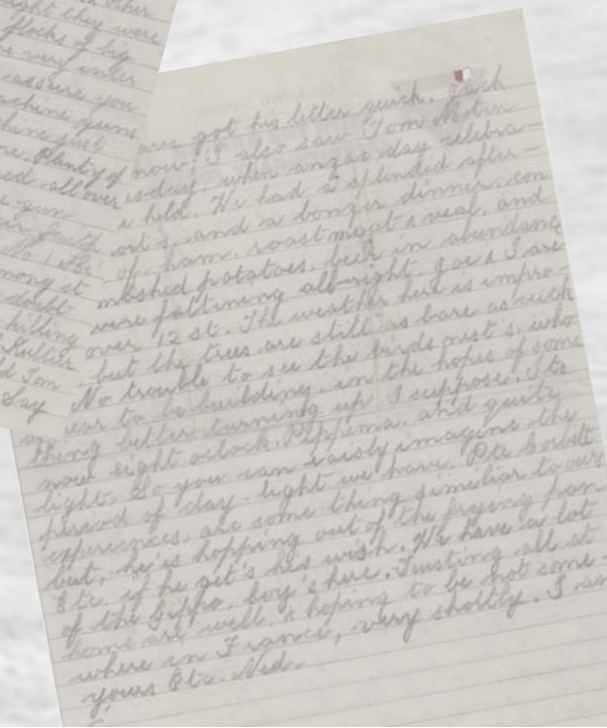 other
ight they were
flocks of big
assure you
machine guns
hine just
Plenty of
ed all over
gun
No 1
mong st
doubt
killing
Kultur
d Tom
Say
got his letter quick. Jack
now; I also saw Tom
day, when anzac day celebra-
held. We had a splendid after-
ort s, and a bonzer dinner, con
of, ham, roast meat s veal, and
mashed potatoes, beer in abundance
were fattining all-right. Joe & I are
over 12 st. The weather here is impro-
but the trees are still as bare as
No trouble to see the birds nest s, who
ear to be building, in the hopes of some
thing better turning up I suppose. Its
now eight oclock. P.p.ema. and quite
light. So you can eaisly imagine the
period of day-light we have. Pte
experiences, are some thing similiar to our
but, he is hopping out of the frying pan
&tc. if he get's his wish. We have a lot
of the Gippo, boy's here. Trusting all at
home are well. & hoping to be not some
where in France, very shortly. I am
yours Pte. Ned.